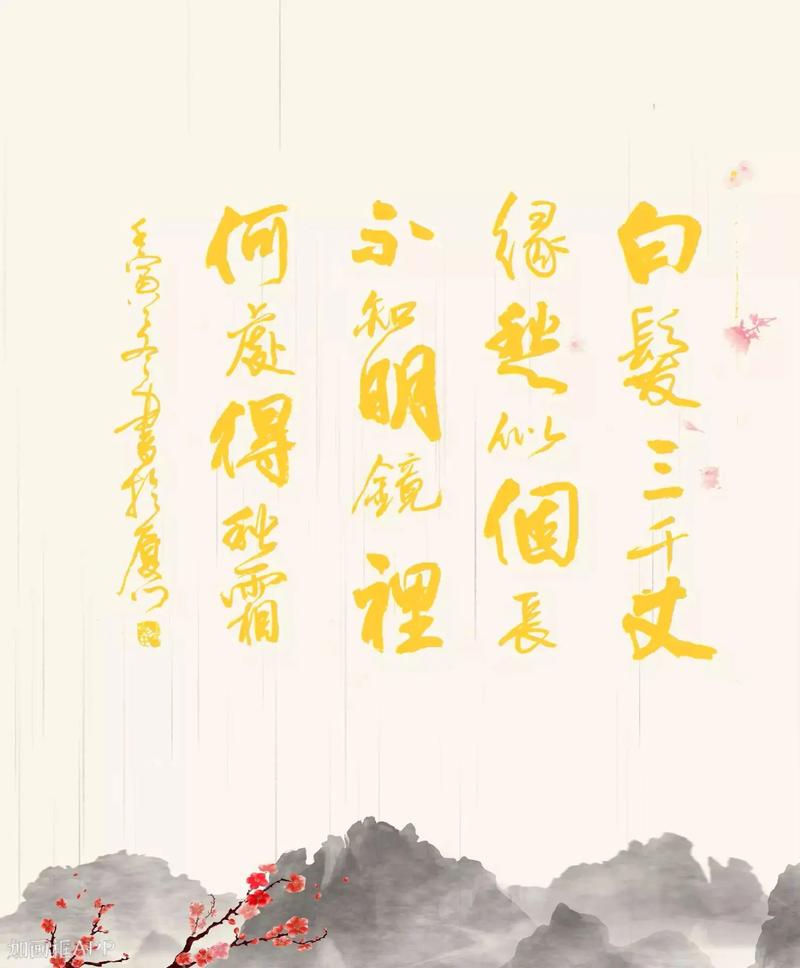 白髮三千丈
緣愁似個長
不知明鏡裡
何處得秋霜
壬寅之冬書於厦门
加画框APP